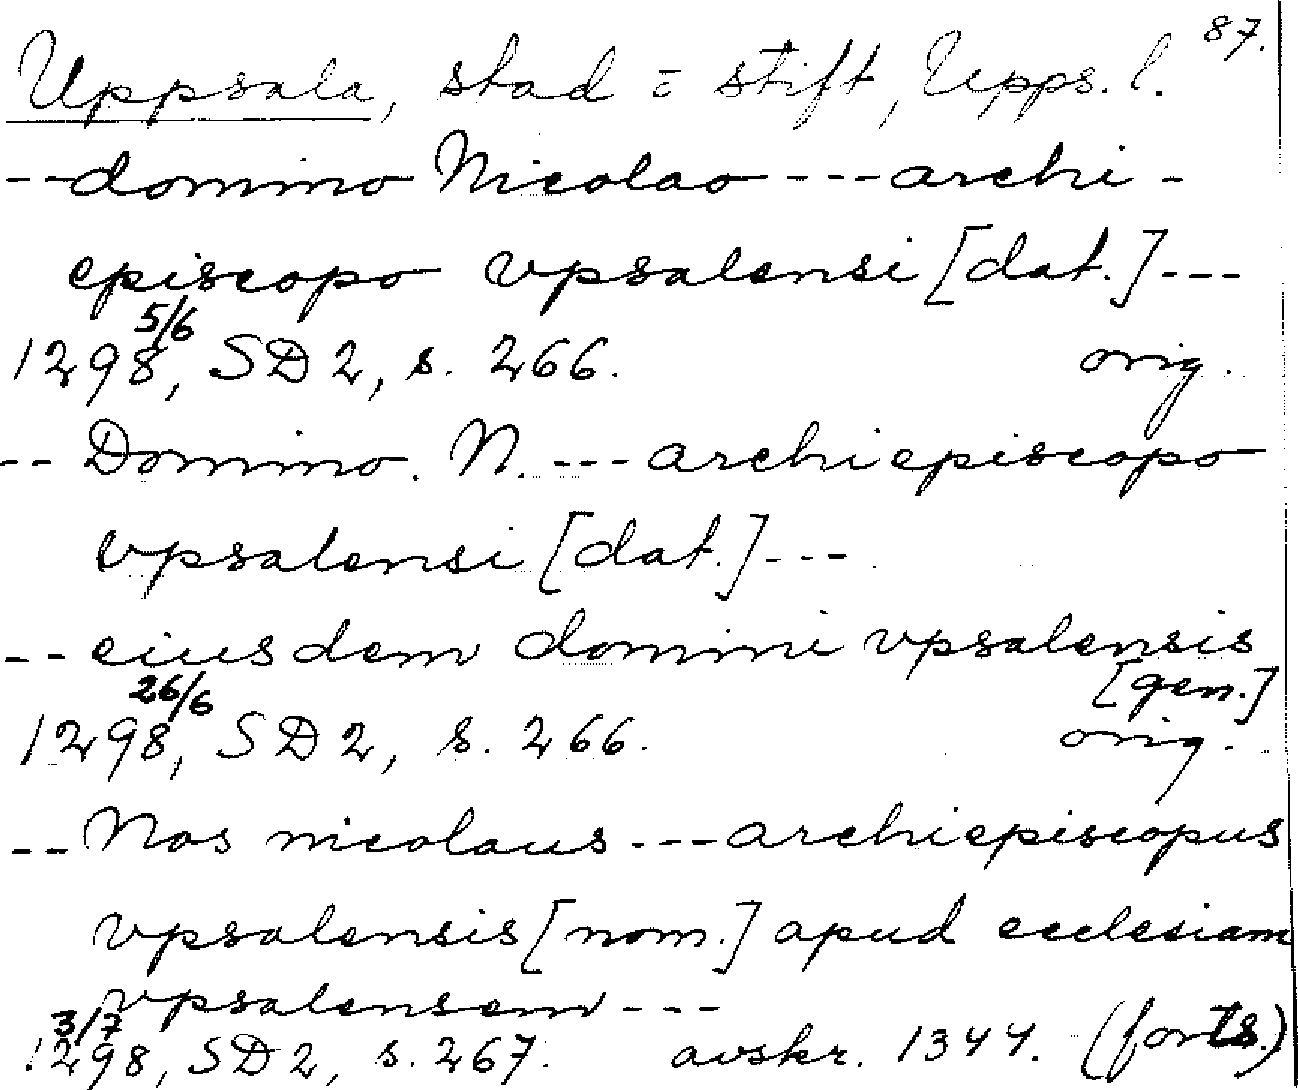 87.
Uppsala, stad = stift, Upps. l.
--domino Nicolao---archi-
episcopo vpsalensi [dat.]---
5/6
1298, SD 2, s. 266. orig.
-- Domino. N. --- archiepiscopo
vpsalensi [dat.]---
-- eiusdem domini vpsalensis
[gen.]
26/6
1298, SD 2, s. 266. orig.
--Nos nicolaus ---archiepiscopus
vpsalensis [nom.] apud ecclesiam
vpsalensem ---
3/7
1298, SD 2, s. 267. avskr. 1344. (forts.)